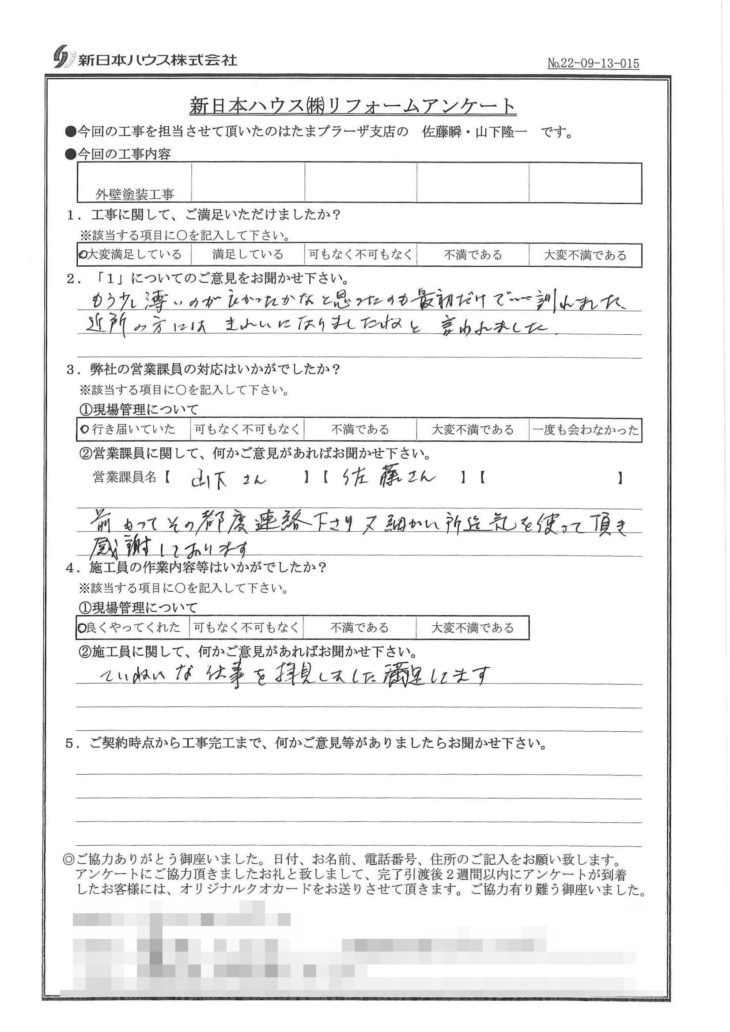 新日本ハウス株式会社
№22-09-13-015
新日本ハウス㈱リフォームアンケート
●今回の工事を担当させて頂いたのはたまプラーザ支店の 佐藤瞬・山下隆一 です。
●今回の工事内容
外壁塗装工事
1．工事に関して、ご満足いただけましたか？
※該当する項目に○を記入して下さい。
○大変満足している 満足している 可もなく不可もなく 不満である 大変不満である
2．「1」についてのご意見をお聞かせ下さい。
もう少し薄いのが良かったかなと思ったのも最初だけで……訓れました
近所の方には きれいになりましたねと 言われました
3．弊社の営業課員の対応はいかがでしたか？
※該当する項目に○を記入して下さい。
①現場管理について
○行き届いていた 可もなく不可もなく 不満である 大変不満である 一度も会わなかった
②営業課員に関して、何かご意見があればお聞かせ下さい。
営業課員名【 山下さん 】【 佐藤さん 】【 】
前もってその都度連絡下さり又細かい所迄気を使って頂き
感謝しております
4．施工員の作業内容等はいかがでしたか？
※該当する項目に○を記入して下さい。
①現場管理について
○良くやってくれた 可もなく不可もなく 不満である 大変不満である
②施工員に関して、何かご意見があればお聞かせ下さい。
ていねいな仕事を拝見しました満足してます
5．ご契約時点から工事完工まで、何かご意見等がありましたらお聞かせ下さい。
◎ご協力ありがとう御座いました。日付、お名前、電話番号、住所のご記入をお願い致します。
アンケートにご協力頂きましたお礼と致しまして、完了引渡後2週間以内にアンケートが到着
したお客様には、オリジナルクオカードをお送りさせて頂きます。ご協力有り難う御座いました。